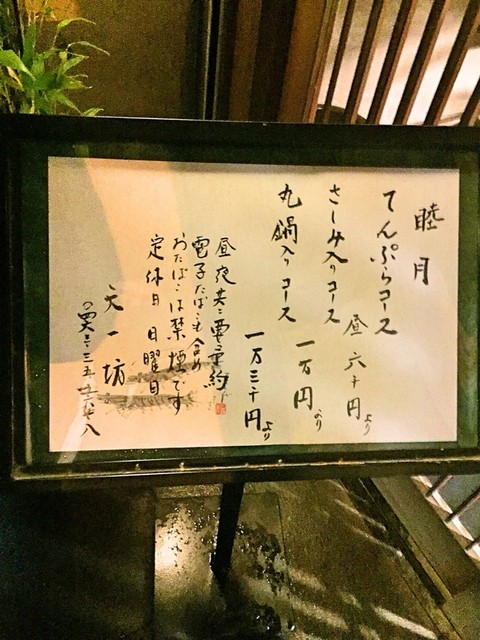 睦月
てんぷらコース
昼 六千円より
さしみ入りコース
一万円より
丸鍋入りコース
一万三千円より
昼夜共ニ要予約
電子たばこも含め
おたばこは禁煙です
定休日 日曜日
天一坊